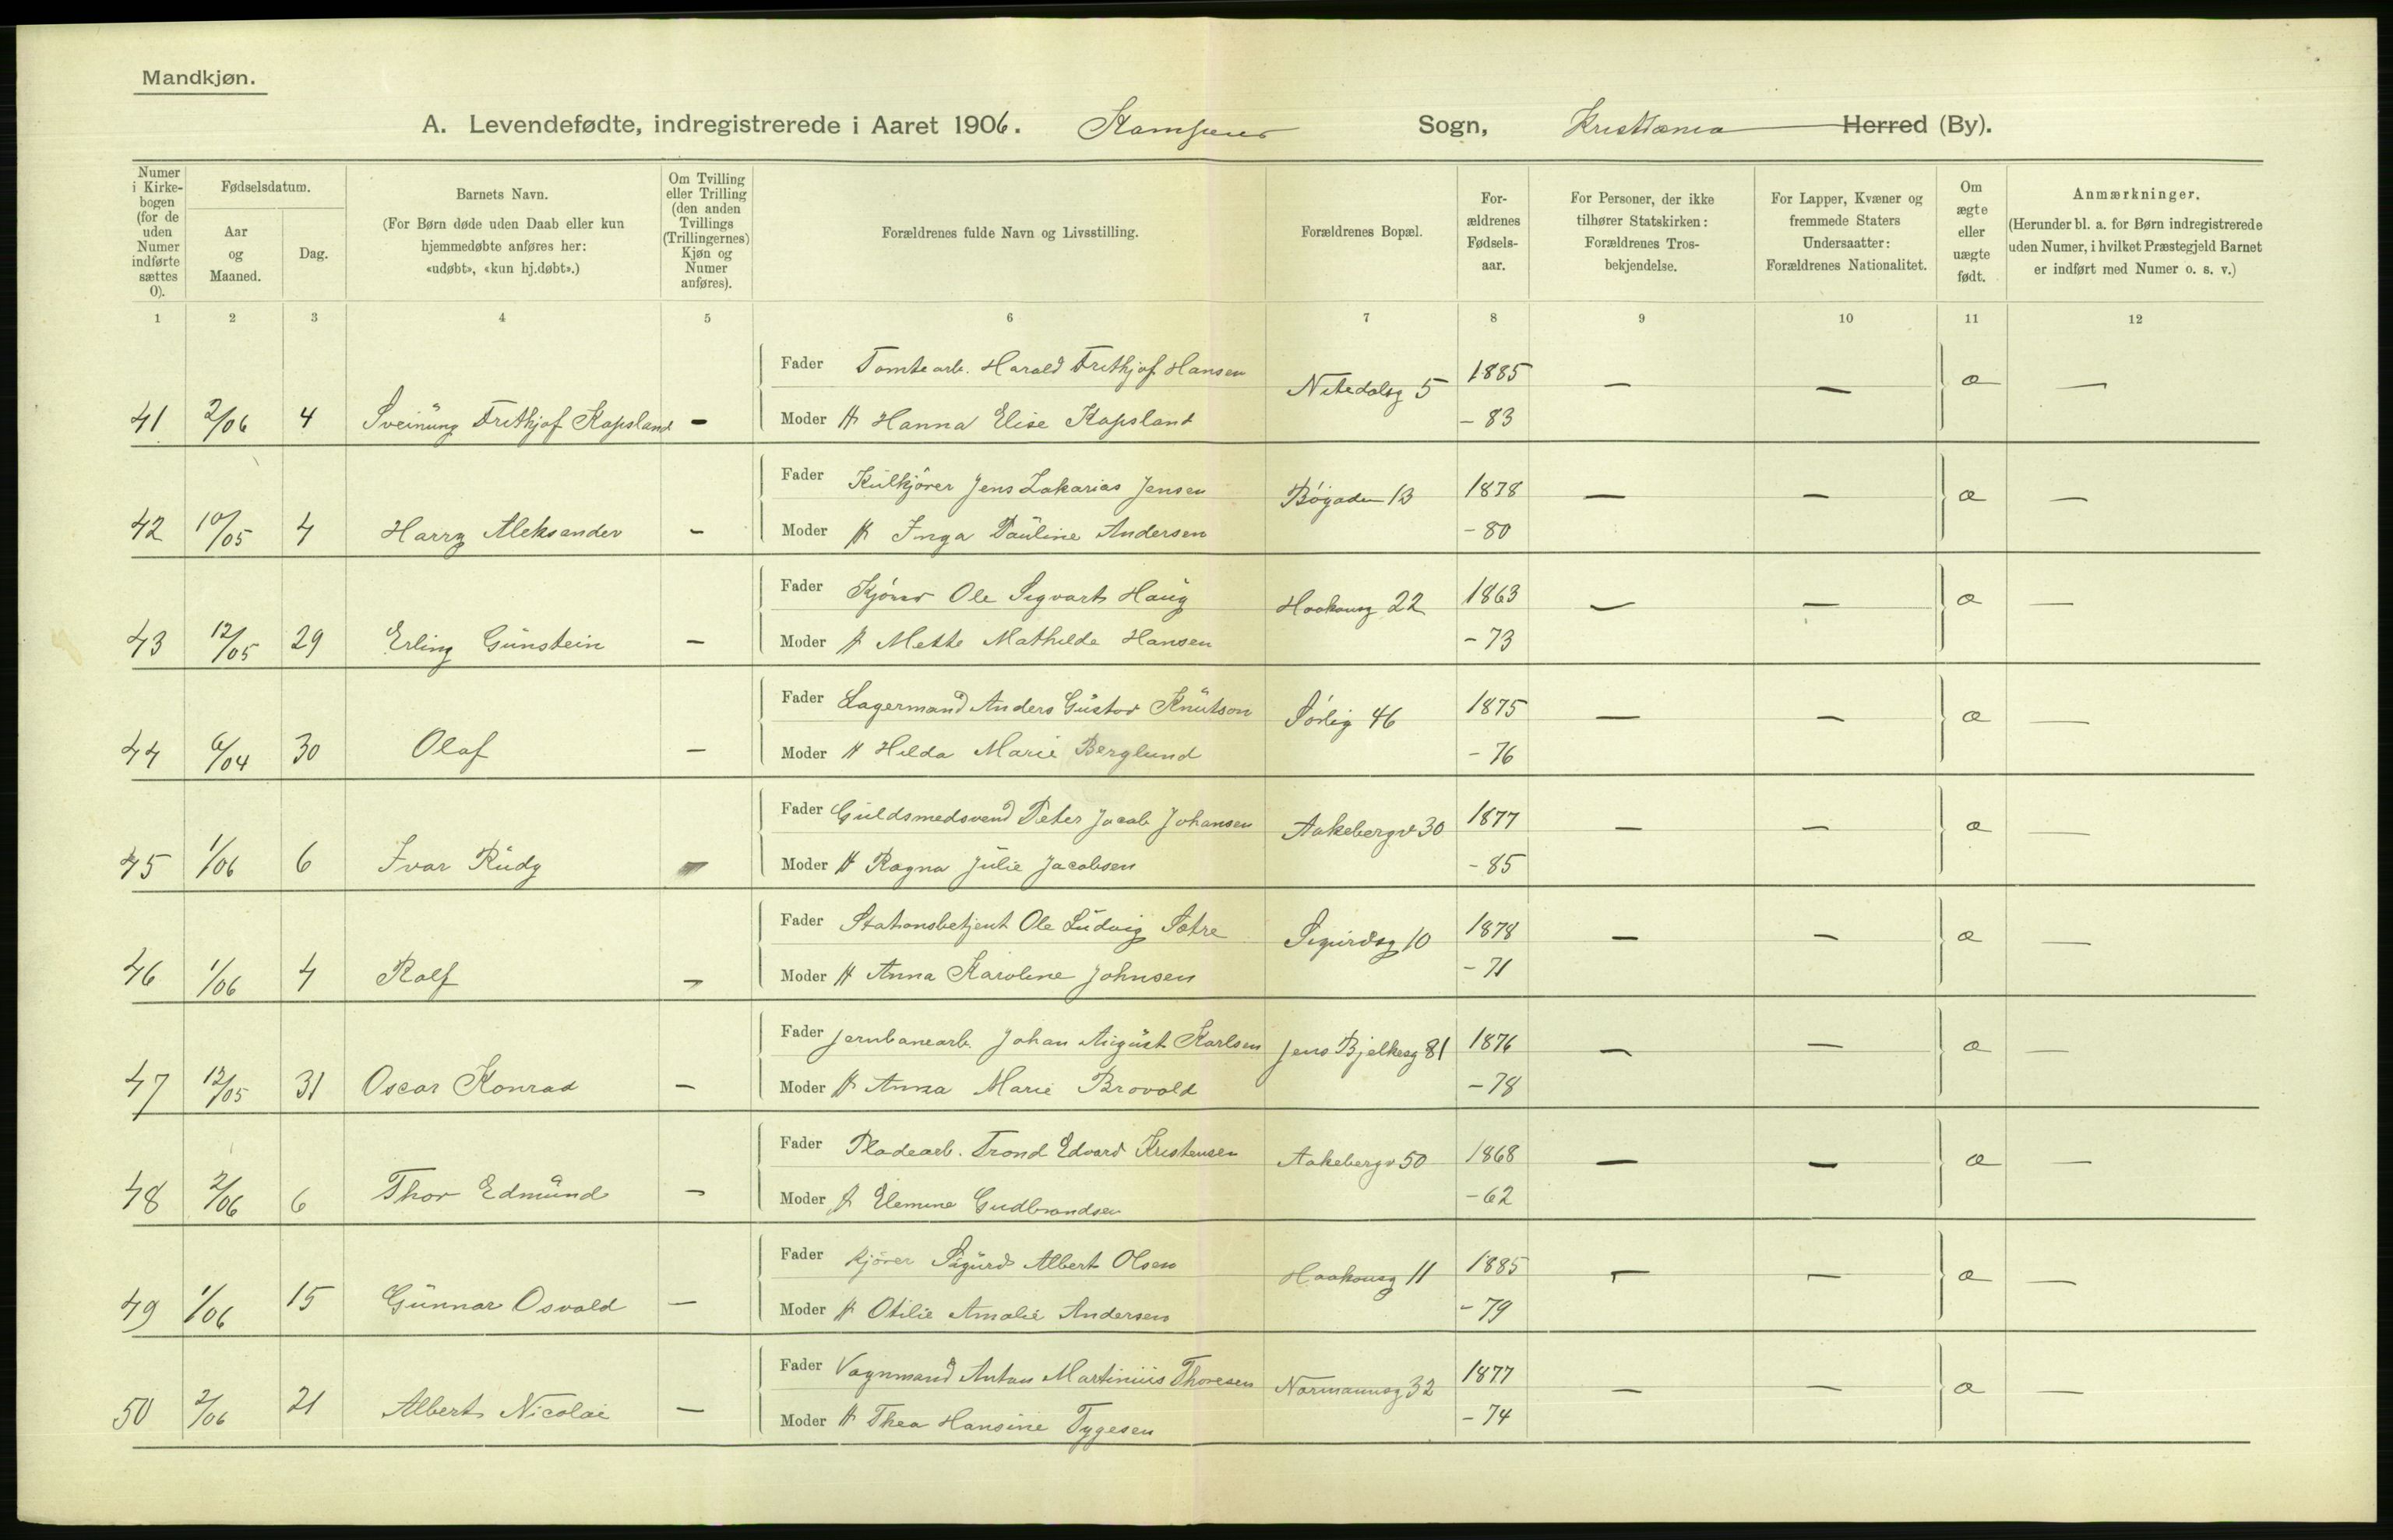 Mandkjøn.
A. Levendefødte, indregistrerede i Aaret 1906. Kampens Sogn, Kristiania Herred (By).
Numer i Kirkebogen (for de uden Numer indførte sættes 0).
Fødselsdatum.
Aar og Maaned.
Dag.
Barnets Navn.
(For Børn døde uden Daab eller kun hjemmedøbte anføres her: «udøbt», «kun hj.døbt».)
Om Tvilling eller Trilling (den anden Tvillings (Trillingernes) Kjøn og Numer anføres).
Forældrenes fulde Navn og Livsstilling.
Forældrenes Bopæl.
Forældrenes Fødselsaar.
For Personer, der ikke tilhører Statskirken: Forældrenes Trosbekjendelse.
For Lapper, Kvæner og fremmede Staters Undersaatter: Forældrenes Nationalitet.
Om ægte eller uægte født.
Anmærkninger.
(Herunder bl. a. for Børn indregistrerede uden Numer, i hvilket Præstegjeld Barnet er indført med Numer o. s. v.)
1 2 3 4 5 6 7 8 9 10 11 12
Fader Tomtearb. Harald Frithjof Hansen Nitedalsg 5 1885 — — æ —
41 2/06 4 Sveinung Frithjof Kapsland - Moder H Hanna Elise Kapsland - 83
Fader Kulkjører Jens Zakarias Jensen Bøgaden 13 1878 — — æ —
42 10/05 4 Harry Aleksander - Moder H Inga Pauline Andersen - 80
Fader Kjører Ole Sigvart Haug Haakonsg 22 1863 — — æ —
43 12/05 29 Erling Gunstein - Moder H Mette Mathilde Hansen - 73
Fader Lagermand Anders Gustav Knutson Sørlig 46 1875 — — æ —
44 6/04 30 Olaf - Moder H Hilda Marie Berglund - 76
Fader Guldsmedsvend Peter Jacob Johansen Aakebergv 30 1877 — — æ —
45 1/06 6 Ivar Rudy - Moder H Ragna Julie Jacobsen - 85
Fader Stationsbetjent Ole Ludvig Sætre Sigurdsg 10 1878 — — æ —
46 1/06 4 Rolf - Moder H Anna Karoline Johnsen - 71
Fader Jernbanearb. Johan August Karlsen Jens Bjelkesg 81 1876 — — æ —
47 12/05 31 Oscar Konrad - Moder H Anna Marie Brovold - 78
Fader Pladearb. Trond Edvard Kristensen Aakebergv 50 1868 — — æ —
48 2/06 6 Thor Edmund - Moder H Elemine Gudbrandsen - 62
Fader Kjører Sigurd Albert Olsen Haakonsg 11 1885 — — æ —
49 1/06 15 Gunnar Osvald - Moder H Otilie Amalie Andersen - 79
Fader Vognmand Anton Martinius Thoresen Normannsg 32 1877 — — æ —
50 2/06 21 Albert Nicolai - Moder H Thea Hansine Tygesen - 74